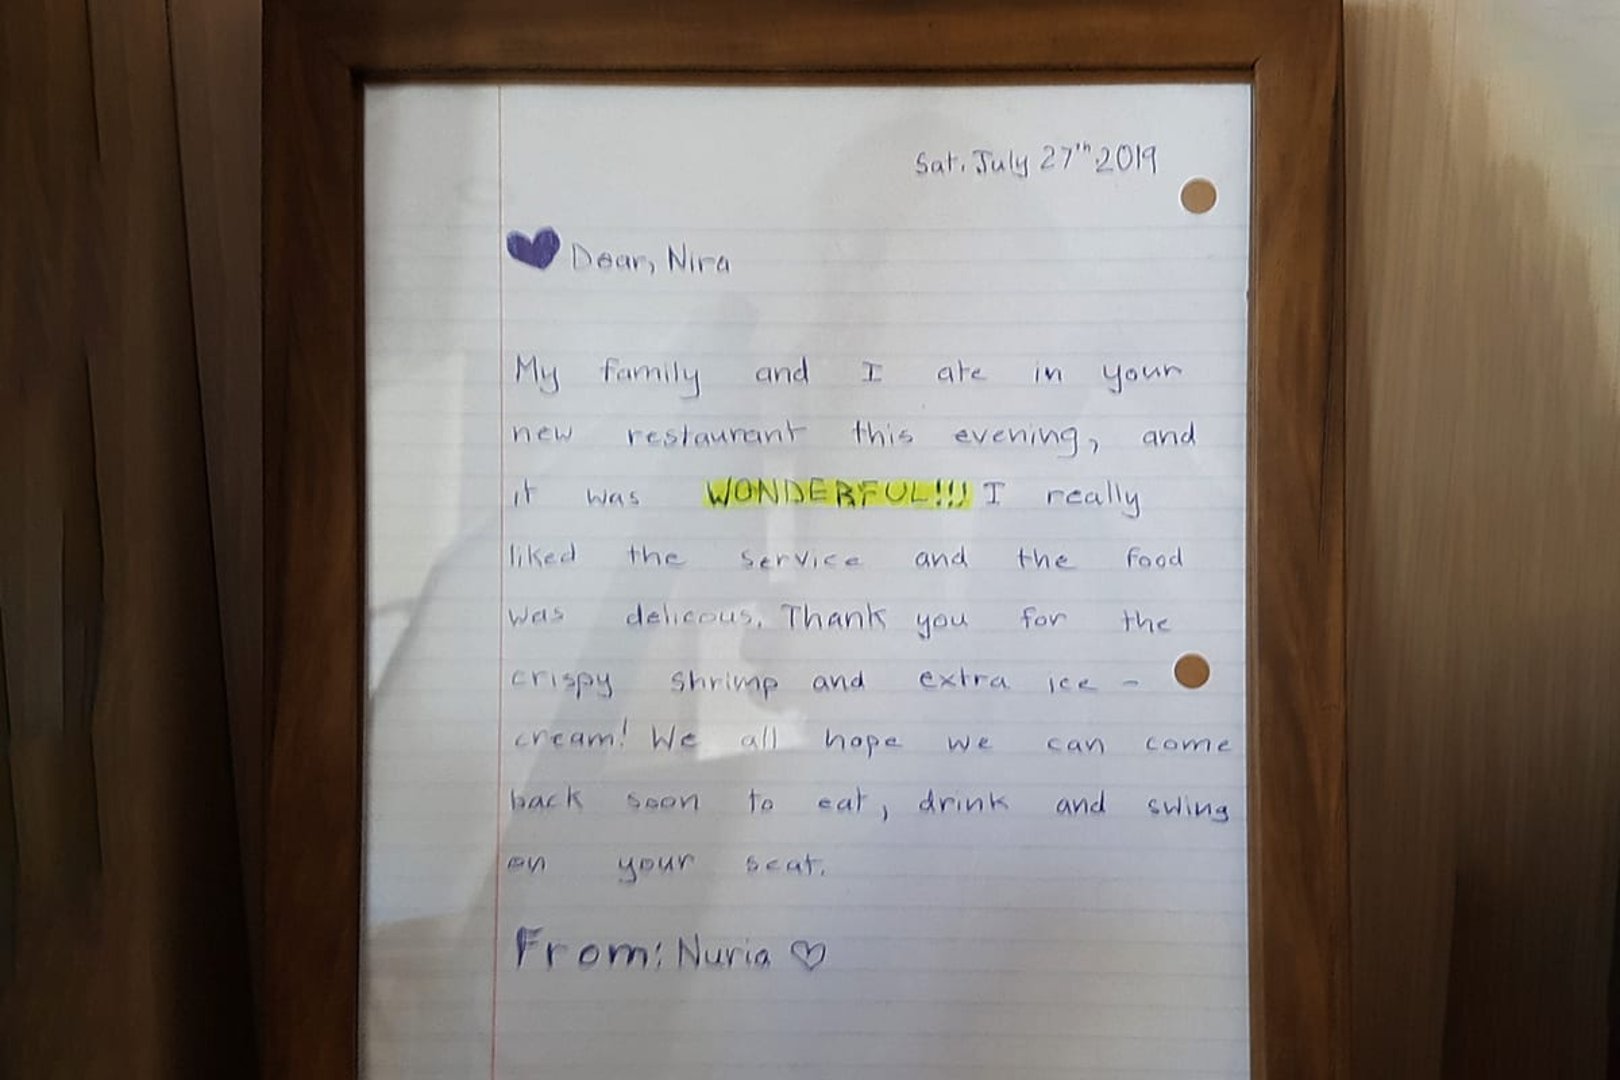 Sat. July 27th 2019
Dear, Nira
My family and I ate in your
new restaurant this evening, and
it was WONDERFUL!!! I really
liked the service and the food
was delicous. Thank you for the
crispy shrimp and extra ice -
cream! We all hope we can come
back soon to eat, drink and swing
on your seat.
From: Nuria ♡